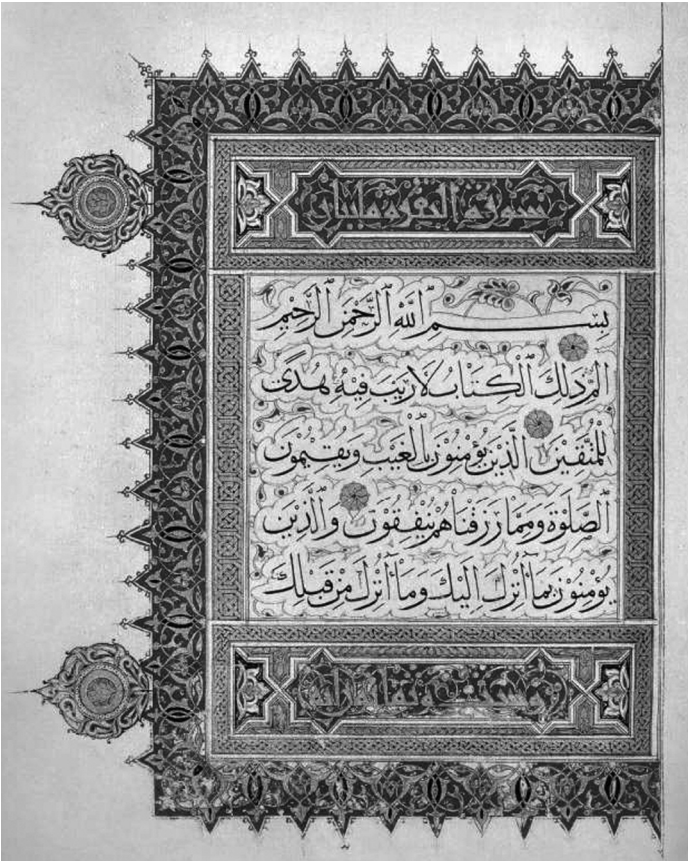 سورة البقرة مائتان
بِسْمِ ٱللَّهِ ٱلرَّحْمَٰنِ ٱلرَّحِيْمِ
الٓمٓ ذٰلِكَ ٱلْكِتَابُ لَا رَيْبَ فِيْهِ هُدًى
لِلْمُتَّقِيْنَ الَّذِيْنَ يُؤْمِنُوْنَ بِالْغَيْبِ وَيُقِيْمُونَ
ٱلصَّلٰوةَ وَمِمَّا رَزَقْنَاهُمْ يُنْفِقُوْنَ وَالَّذِيْنَ
يُؤْمِنُوْنَ بِمَا أُنْزِلَ اِلَيْكَ وَمَا أُنْزِلَ مِنْ قَبْلِكَ